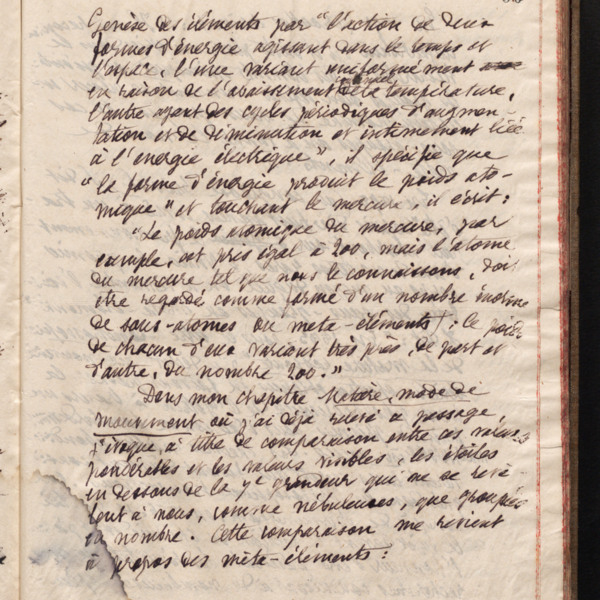 Genèse des éléments par "l'action de deux
formes d'énergie agissant dans le temps et
l'espace, l'une variant uniformément
en raison de l'abaissement de la température,
l'autre ayant des cycles périodiques d'augmen-
tation et de diminution et intimement liée
à l'énergie électrique", il spécifie que
"la forme d'énergie produit le poids ato-
mique" et touchant le mercure, il écrit :
"Le poids atomique du mercure, par
exemple, est pris égal à 200, mais l'atome
du mercure, tel que nous le connaissons, doit
être regardé comme formé d'un nombre énorme
de sous-atomes ou meta-éléments) ; le poids
de chacun d'eux variant très près, de part et
d'autre, du nombre 200."
Dans mon chapitre Matière, mode de
mouvement où j'ai déjà relevé ce passage,
j'évoque, à titre de comparaison entre ces valeurs
pondérables et les valeurs visibles, les étoiles
en dessous de la 7e grandeur qui ne se révè-
lent à nous, comme nébuleuses, que groupées
en nombre. Cette comparaison me revient
à propos des méta-éléments :